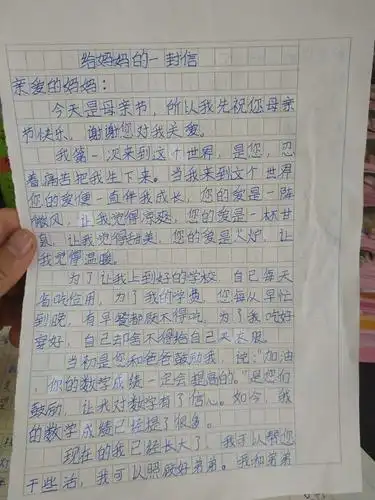 给妈妈的一封信
亲爱的妈妈：
今天是母亲节，所以我先祝您母亲
节快乐，谢谢您对我关爱。
我第一次来到这个世界，是您，忍
着痛苦把我生下来。当我来到这个世界
您的爱便一直伴我成长，您的爱是一阵
微风，让我觉得凉爽，您的爱是一杯甘
泉，让我觉得甜美，您的爱是火炉，让
我觉得温暖。
为了让我上到好的学校，自己每天
省吃俭用，为了我的学费，您每从早忙
到晚，有早餐都舍不得吃，为了我吃好
穿好，自己却舍不得给自己买衣服。
当初是您和爸爸鼓励我，说：“加油
，你的数学成绩一定会提高的。”是您们
鼓励，让我对数学有了信心。如今，我
的数学成绩已经提了很多。
现在的我已经长大了，我可以帮您
干些活，我可以照顾好弟弟。我和弟弟